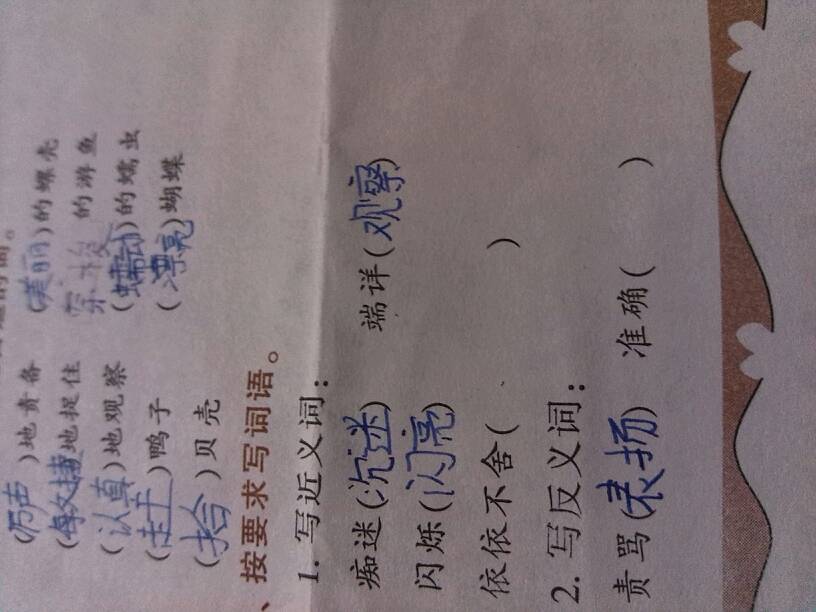 (厉声)地责备 (美丽)的螺壳
(敏捷)地捉住 穿梭的游鱼
(认真)地观察 (蠕动)的蠕虫
(赶)鸭子 (漂亮)蝴蝶
(拾)贝壳
、按要求写词语。
1. 写近义词:
痴迷(沉迷) 端详(观察)
闪烁(闪亮)
依依不舍( )
2. 写反义词:
责骂(表扬) 准确( )